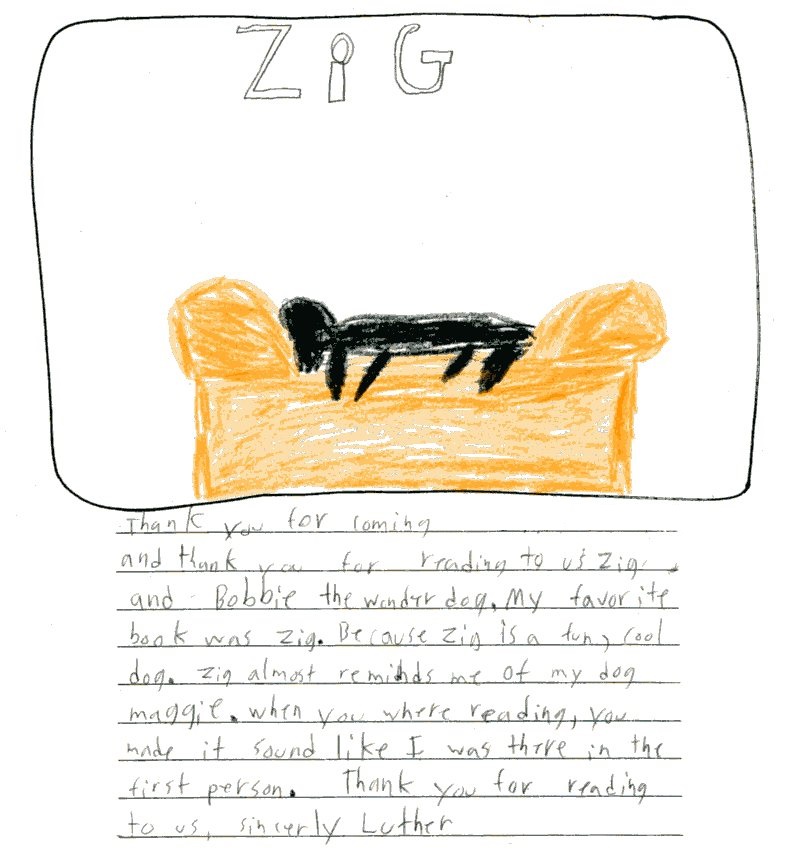 ZiG
Thank you for coming
and thank you for reading to us Zig
and Bobbie the wonder dog. My favorite
book was Zig. Because Zig is a fun, cool
dog. Zig almost reminds me of my dog
maggie. when you where reading, you
made it sound like I was there in the
first person. Thank you for reading
to us, sincerly Luther